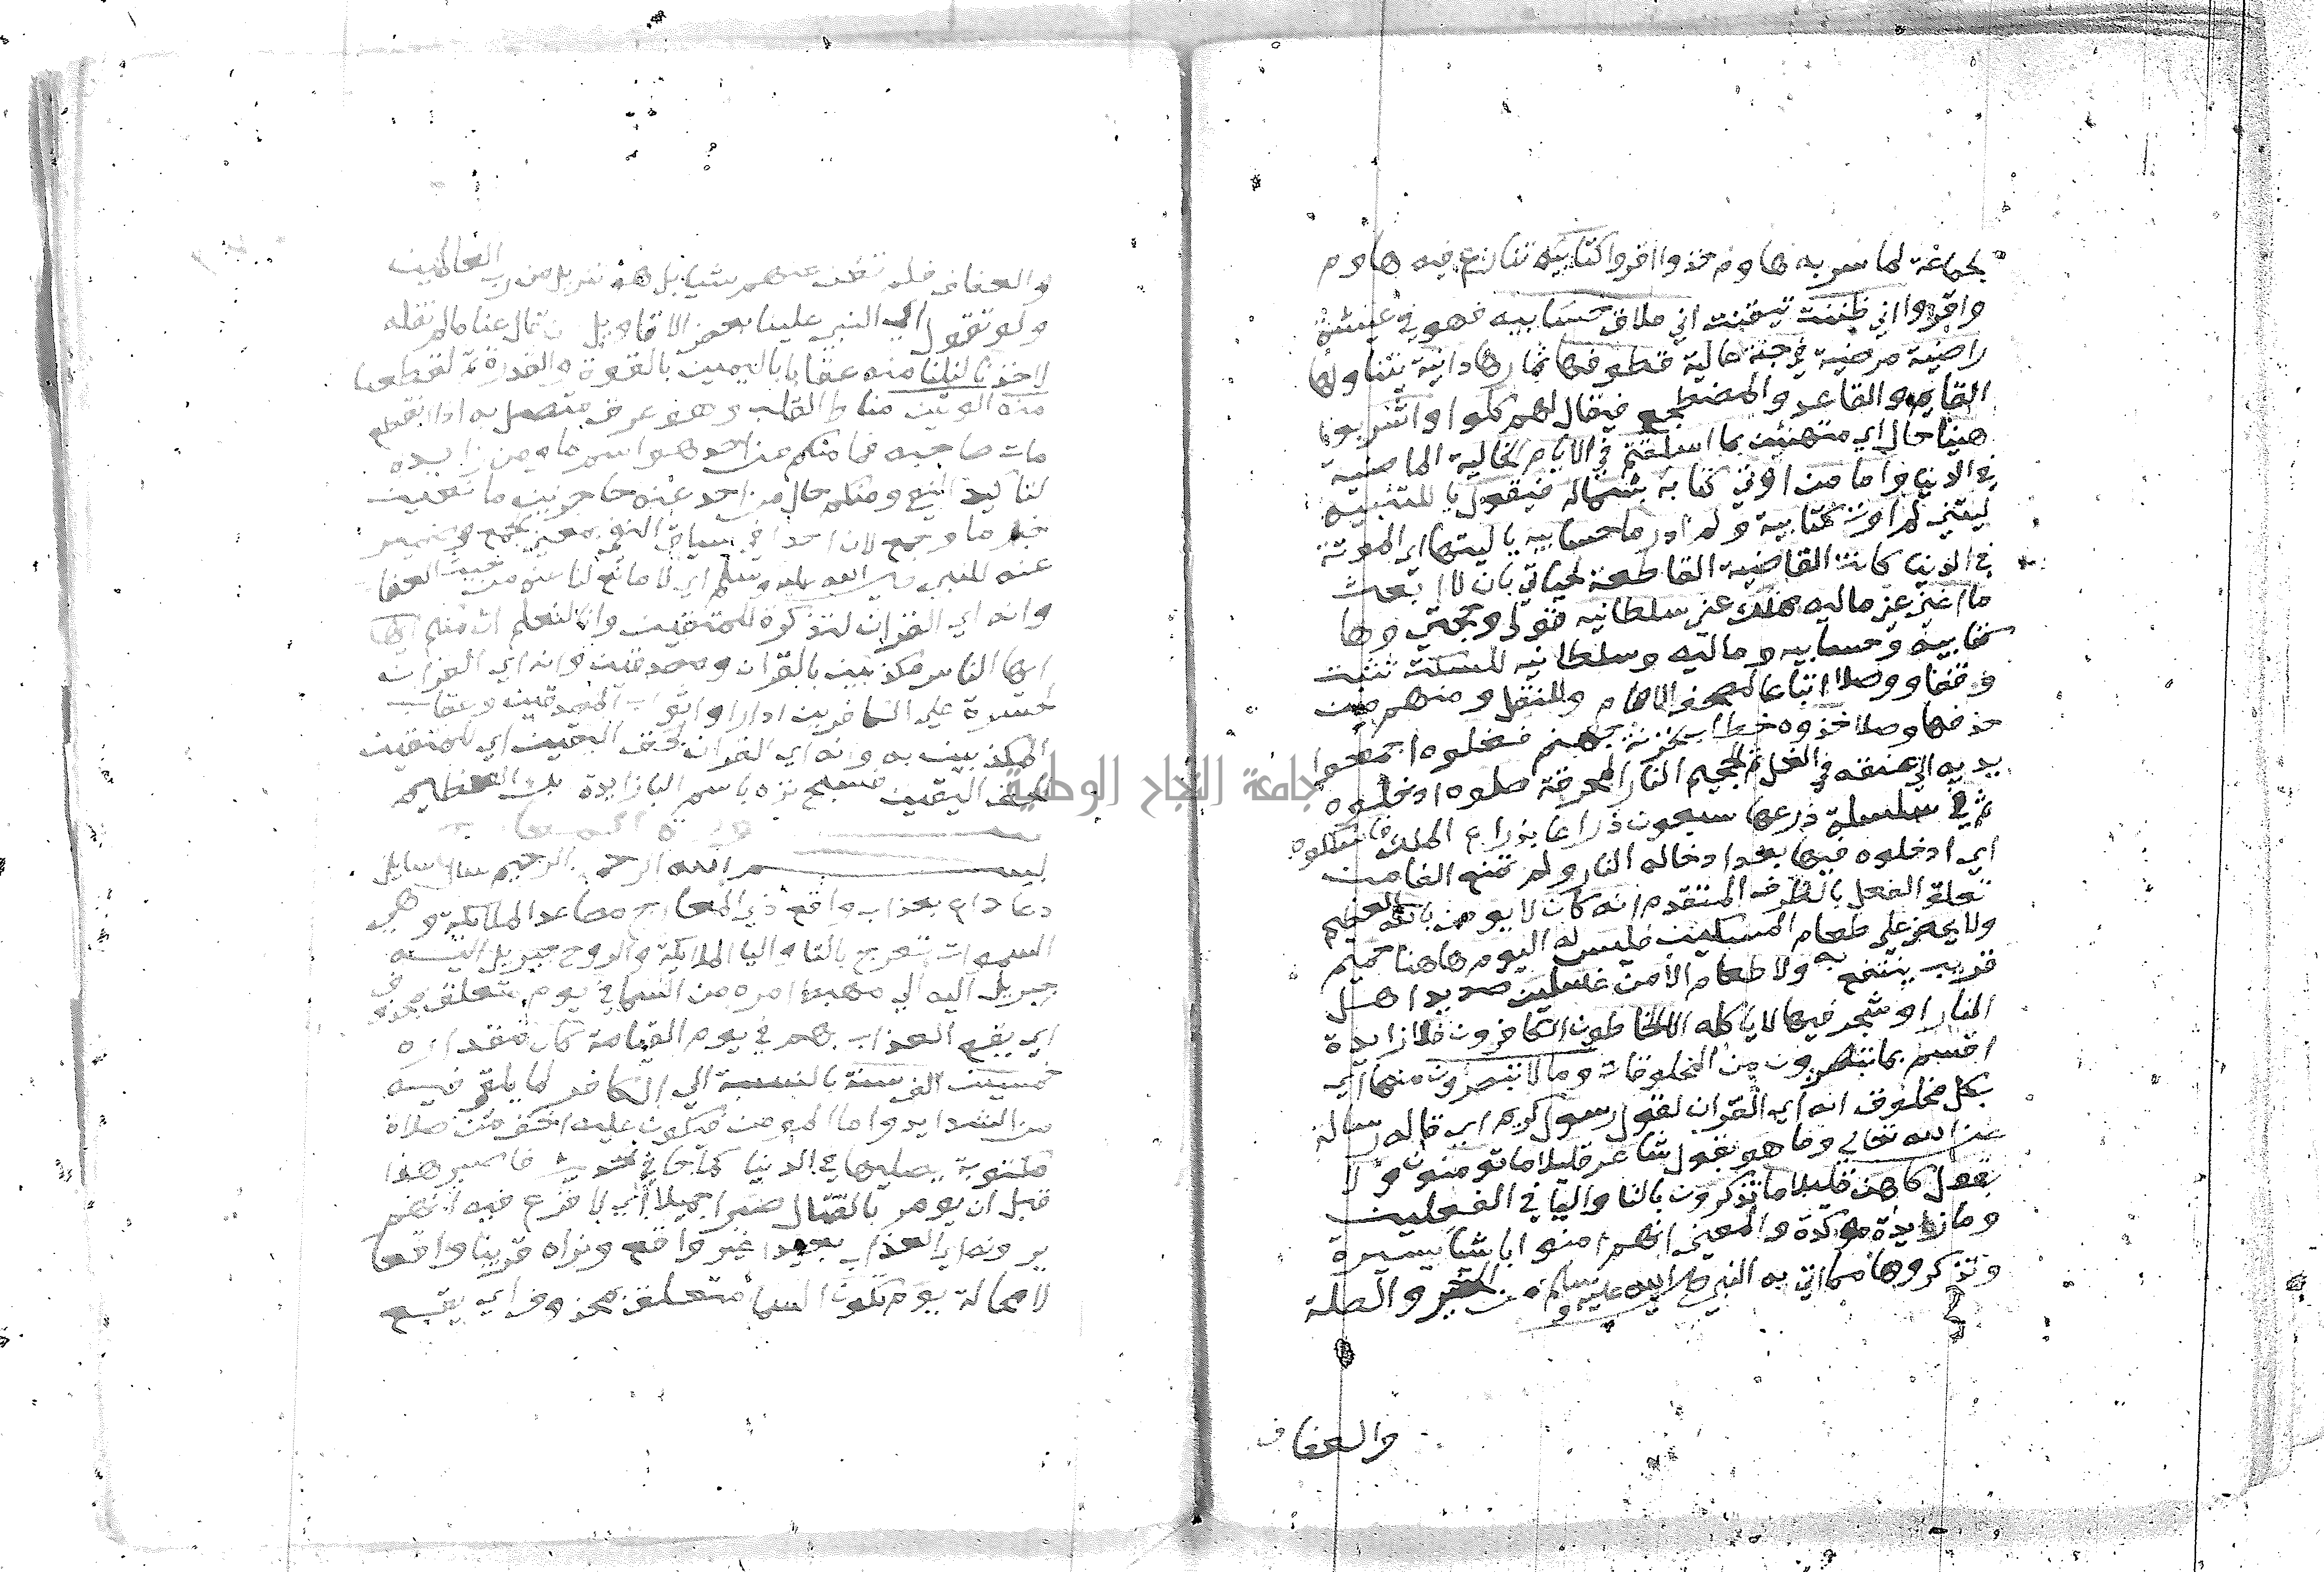 لجماعة لما سر به هاوم خذوا اقروا كتابيه تنازع فيه هاوم
واقروا اني ظننت تيقنت اني ملاق حسابيه فهو في عيشة
راضية مرضية في جنة عالية قطوفها ثمارها دانية يتناولها
القايم والقاعد والمضطجع فيقال لهم كلوا واشربوا
هنيا حال اي متهنئين بما اسلفتم في الايام الخالية الماضية
في الدنيا واما من اوتي كتابه بشماله فيقول يا للتنبيه
ليتني لم اوت كتابيه ولم ادر ما حسابيه يا ليتها اي الموتة
في الدنيا كانت القاضية القاطعة لحياتي بان لا ابعث
ما اغني عني ماليه هلك عني سلطانيه قوتي وحجتي وها
كتابيه وحسابيه وماليه وسلطانيه للسكت تثبت
وقفا ووصلا اتباعا لمصحف الامام والنقل ومنهم من
حذفها وصلا خذوه خطاب لخزنة جهنم فغلوه اجمعوا
يديه الي عنقه في الغل ثم الجحيم النار المحرقة صلوه ادخلوه
ثم في سلسلة ذرعها سبعون ذراعا بذراع الملك فاسلكوه
اي ادخلوه فيها بعد ادخاله النار ولم تمنع الفا من
تعلق الفعل بالظرف المتقدم انه كان لا يومن بالله العظيم
ولا يحض علي طعام المسكين فليس له اليوم هاهنا حميم
قريب ينتفع به ولا طعام الا من غسلين صديد اهل
النار او شجر فيها لا ياكله الا الخاطون الكافرون فلا زايدة
اقسم بما تبصرون من المخلوقات وما لا تبصرون منها اي
بكل مخلوق انه اي القران لقول رسول كريم اي قاله رسالة
عن الله تعالي وما هو بقول شاعر قليلا ما تومنون ولا
بقول كاهن قليلا ما تذكرون بالتا واليا في الفعلين
وما زايدة موكدة والمعني انهم امنوا باشيا يسيرة
وتذكروها مما اتي به النبي صلي الله عليه وسلم من الخير والصلة
والعفاف
والعفاف فلم تغن عنهم شيا بل هو تنزيل من رب العالمين
ولو تقول اي النبي علينا بعض الاقاويل بان قال عنا ما لم نقله
لاخذنا لنلنا منه عقابا باليمين بالقوة والقدرة ثم لقطعنا
منه الوتين نياط القلب وهو عرق متصل به اذا انقطع
مات صاحبه فما منكم من احد هو اسم ما ومن زايدة
لتاكيد النفي ومنكم حال من احد عنه حاجزين مانعين
خبر ما وجمع لان احدا في سياق النفي بمعني الجمع وضمير
عنه للنبي صلي الله عليه وسلم اي لا مانع لنا عنه من حيث العقاب
وانه اي القران لتذكرة للمتقين وانا لنعلم ان منكم ايها
ايها الناس مكذبين بالقران ومصدقين وانه اي القران
لحسرة علي الكافرين اذا راوا ثواب المصدقين وعقاب
المكذبين به وانه اي القران لحق اليقين اي لليقين
لحق اليقين فسبح نزه باسم البا زايدة ربك العظيم
بسم الله الرحمن الرحيم سال سايل
دعا داع بعذاب واقع ذي المعارج مصاعد الملايكة وهي
السموات تعرج بالتا واليا الملايكة والروح جبريل اليه
جبريل اليه الي مهبط امره من السما في يوم متعلق بمحذوف
اي يقع العذاب بهم في يوم القيامة كان مقداره
خمسين الف سنة بالنسبة الي الكافر لما يلقي فيه
من الشدايد واما المومن فيكون عليه اخف من صلاة
مكتوبة يصليها في الدنيا كما جا في الحديث فاصبر هذا
قبل ان يومر بالقتال صبرا جميلا اي لا فزع فيه انهم
يرونه اي العذاب بعيدا غير واقع ونراه قريبا واقعا
لا محالة يوم تكون السما متعلق بمحذوف اي يقع
جامعة النجاح الوطنية